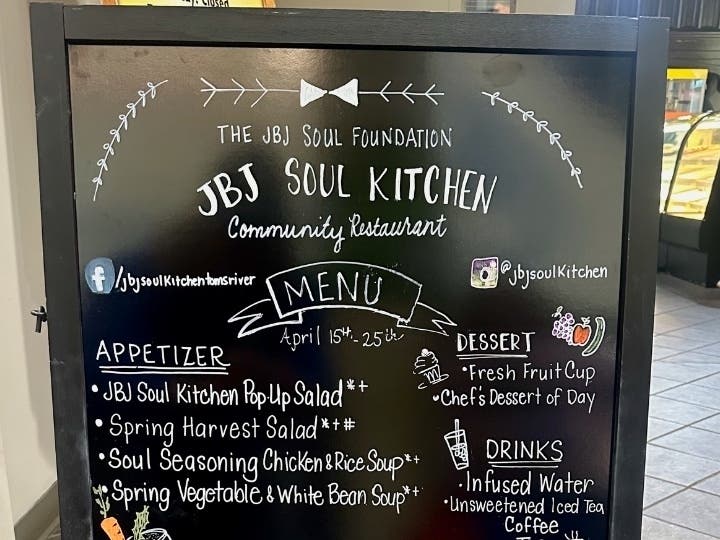 Closed
THE JBJ SOUL FOUNDATION
JBJ SOUL KITCHEN
Community Restaurant
f/jbjsoulkitchentomsriver
@jbjsoulkitchen
MENU
April 15th - 25th
APPETIZER
• JBJ Soul Kitchen Pop-Up Salad*+
• Spring Harvest Salad*+#
• Soul Seasoning Chicken & Rice Soup*+
• Spring Vegetable & White Bean Soup*+
DESSERT
• Fresh Fruit Cup
• Chef's Dessert of Day
DRINKS
• Infused Water
• Unsweetened Iced Tea
Coffee